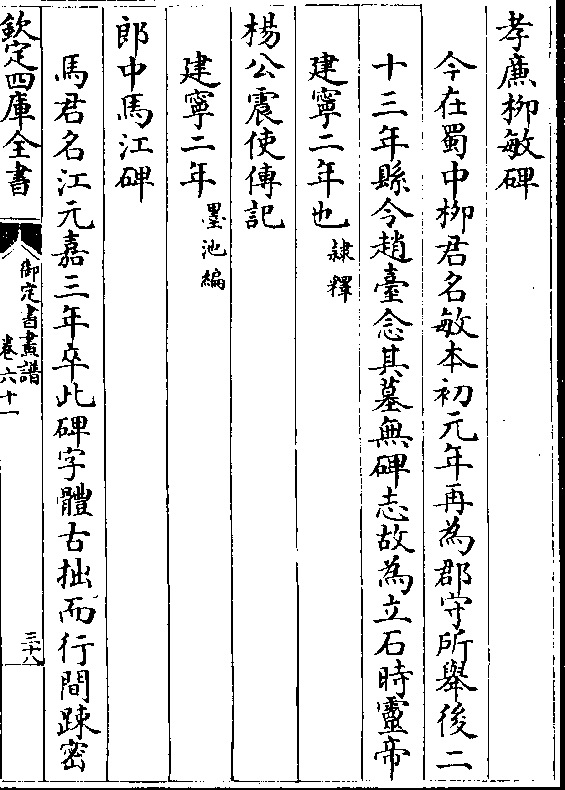 孝廉柳敏碑
今在蜀中柳君名敏本初元年再為郡守所舉後二
十三年縣令趙臺念其墓無碑志故為立石時靈帝
建寧二年也隷釋
楊公震使傳記
建寧二年墨池編
郎中馬江碑
馬君名江元嘉三年卒此碑字體古拙而行間踈密
欽定四庫全書
御定書畫譜
卷六十一
三十八